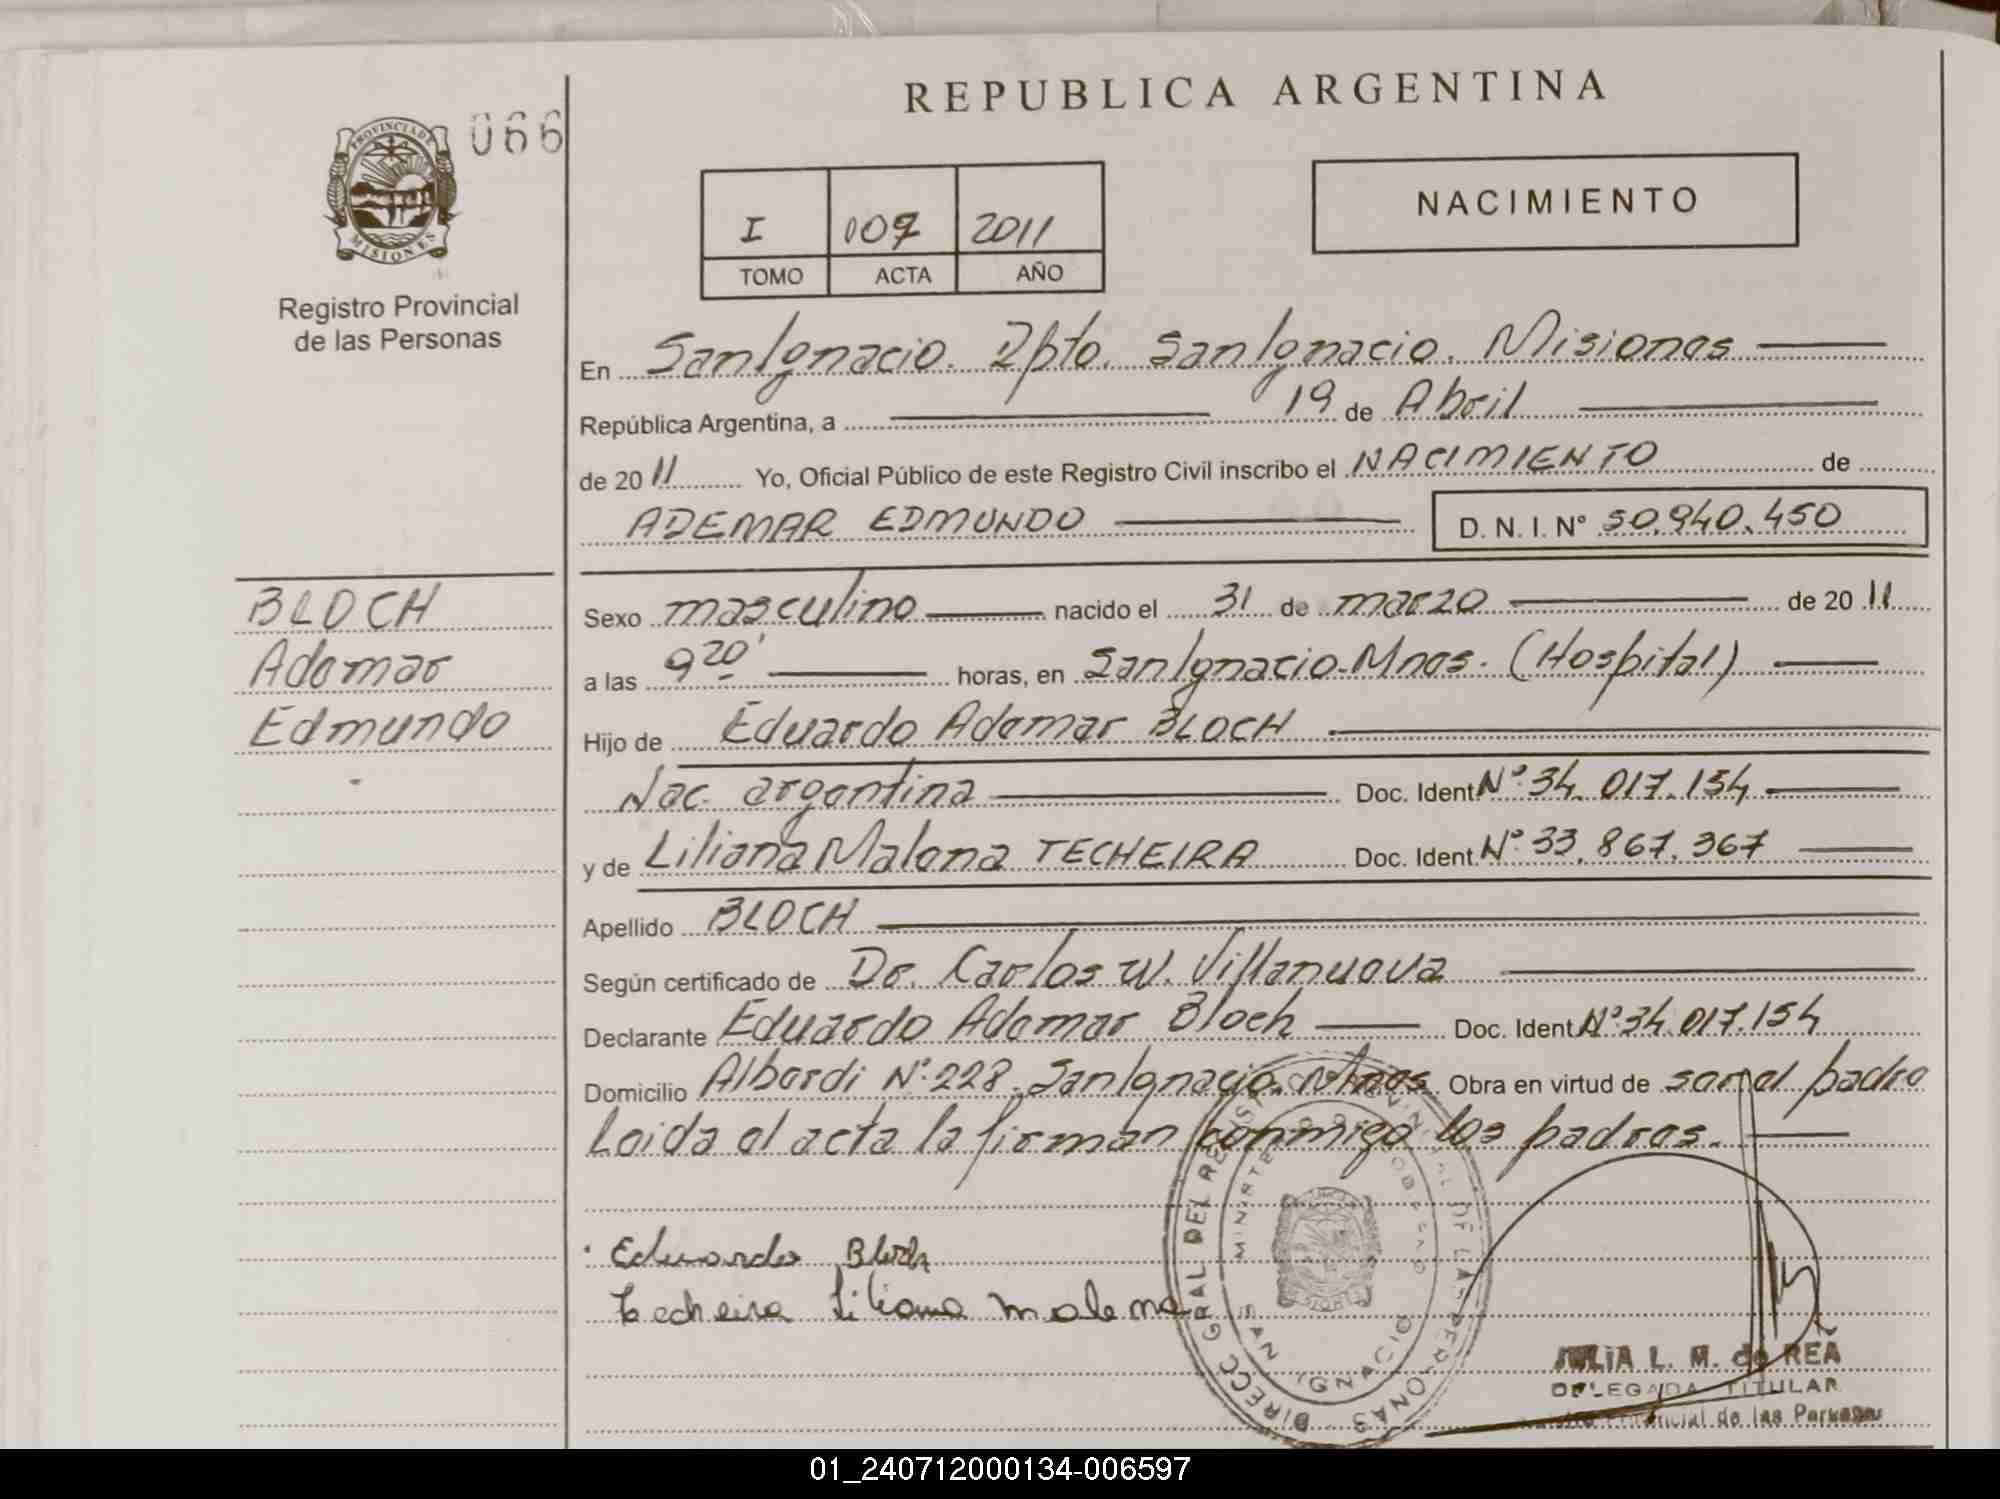 REPUBLICA ARGENTINA
PROVINCIA DE MISIONES
066
Registro Provincial
de las Personas
NACIMIENTO
I 007 2011
TOMO ACTA AÑO
En San Ignacio. Dpto. San Ignacio. Misiones
República Argentina, a 19 de Abril
de 2011 Yo, Oficial Público de este Registro Civil inscribo el NACIMIENTO de
ADEMAR EDMUNDO D. N. I. Nº 50.940.450
BLOCH
Ademar
Edmundo
Sexo masculino nacido el 31 de marzo de 2011
a las 9 20' horas, en San Ignacio-Mnes. (Hospital)
Hijo de Eduardo Ademar BLOCH
Nac. argentina Doc. Ident. Nº 34.017.154
y de Liliana Malena TECHEIRA Doc. Ident. Nº 33.867.367
Apellido BLOCH
Según certificado de Dr. Carlos W. Villanueva
Declarante Eduardo Ademar Bloch Doc. Ident. Nº 34.017.154
Domicilio Alberdi Nº 228. San Ignacio. Mnes. Obra en virtud de ser el padre
Leida el acta la firman conmigo los padres.
Eduardo Bloch
Techeira Liliana Malena
DIRECC GRAL DEL REGISTRO PROVINCIAL DE LAS PERSONAS
MINISTERIO DE GOBIERNO
SAN IGNACIO
JULIA L. M. de REA
DELEGADA TITULAR
Provincial de las Personas
01_240712000134-006597